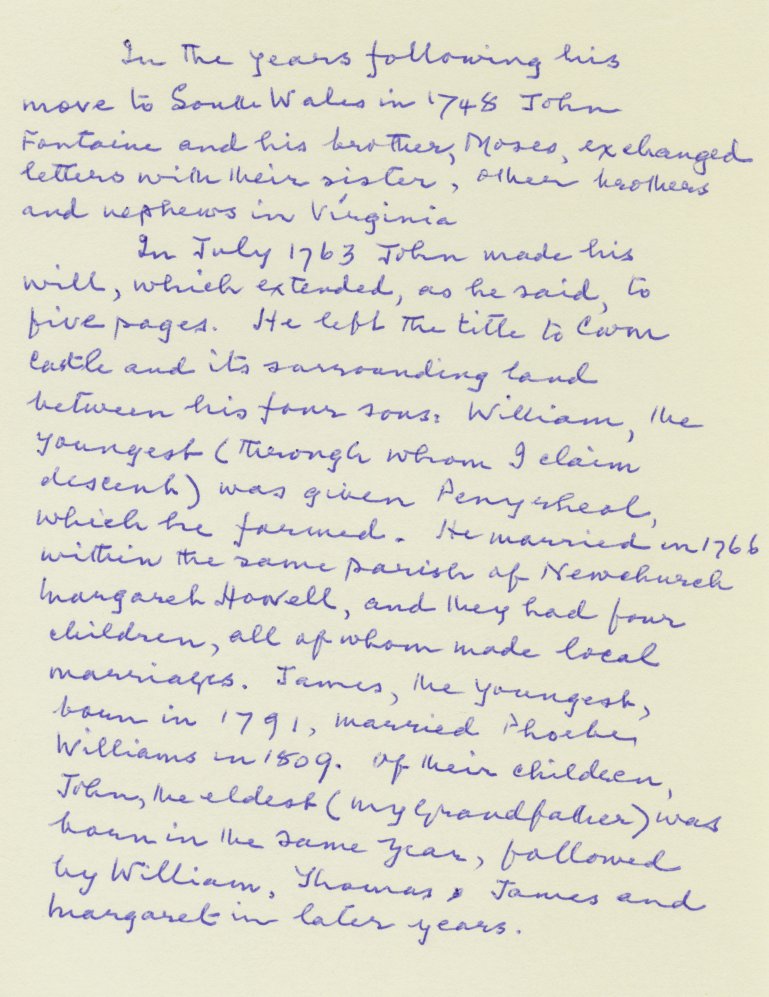 In the years following his
move to South Wales in 1748 John
Fontaine and his brother, Moses, exchanged
letters with their sister, other brothers
and nephews in Virginia
In July 1763 John made his
will, which extended, as he said, to
five pages. He left the title to Cwm
Castle and its surrounding land
between his four sons: William, the
youngest (through whom I claim
descent) was given Penyrheol,
which he farmed. He married in 1766
within the same parish of Newchurch
Margaret Howell, and they had four
children, all of whom made local
marriages. James, the youngest,
born in 1791, married Phoebe
Williams in 1809. Of their children,
John, the eldest (my grandfather) was
born in the same year, followed
by William, Thomas, James and
Margaret in later years.